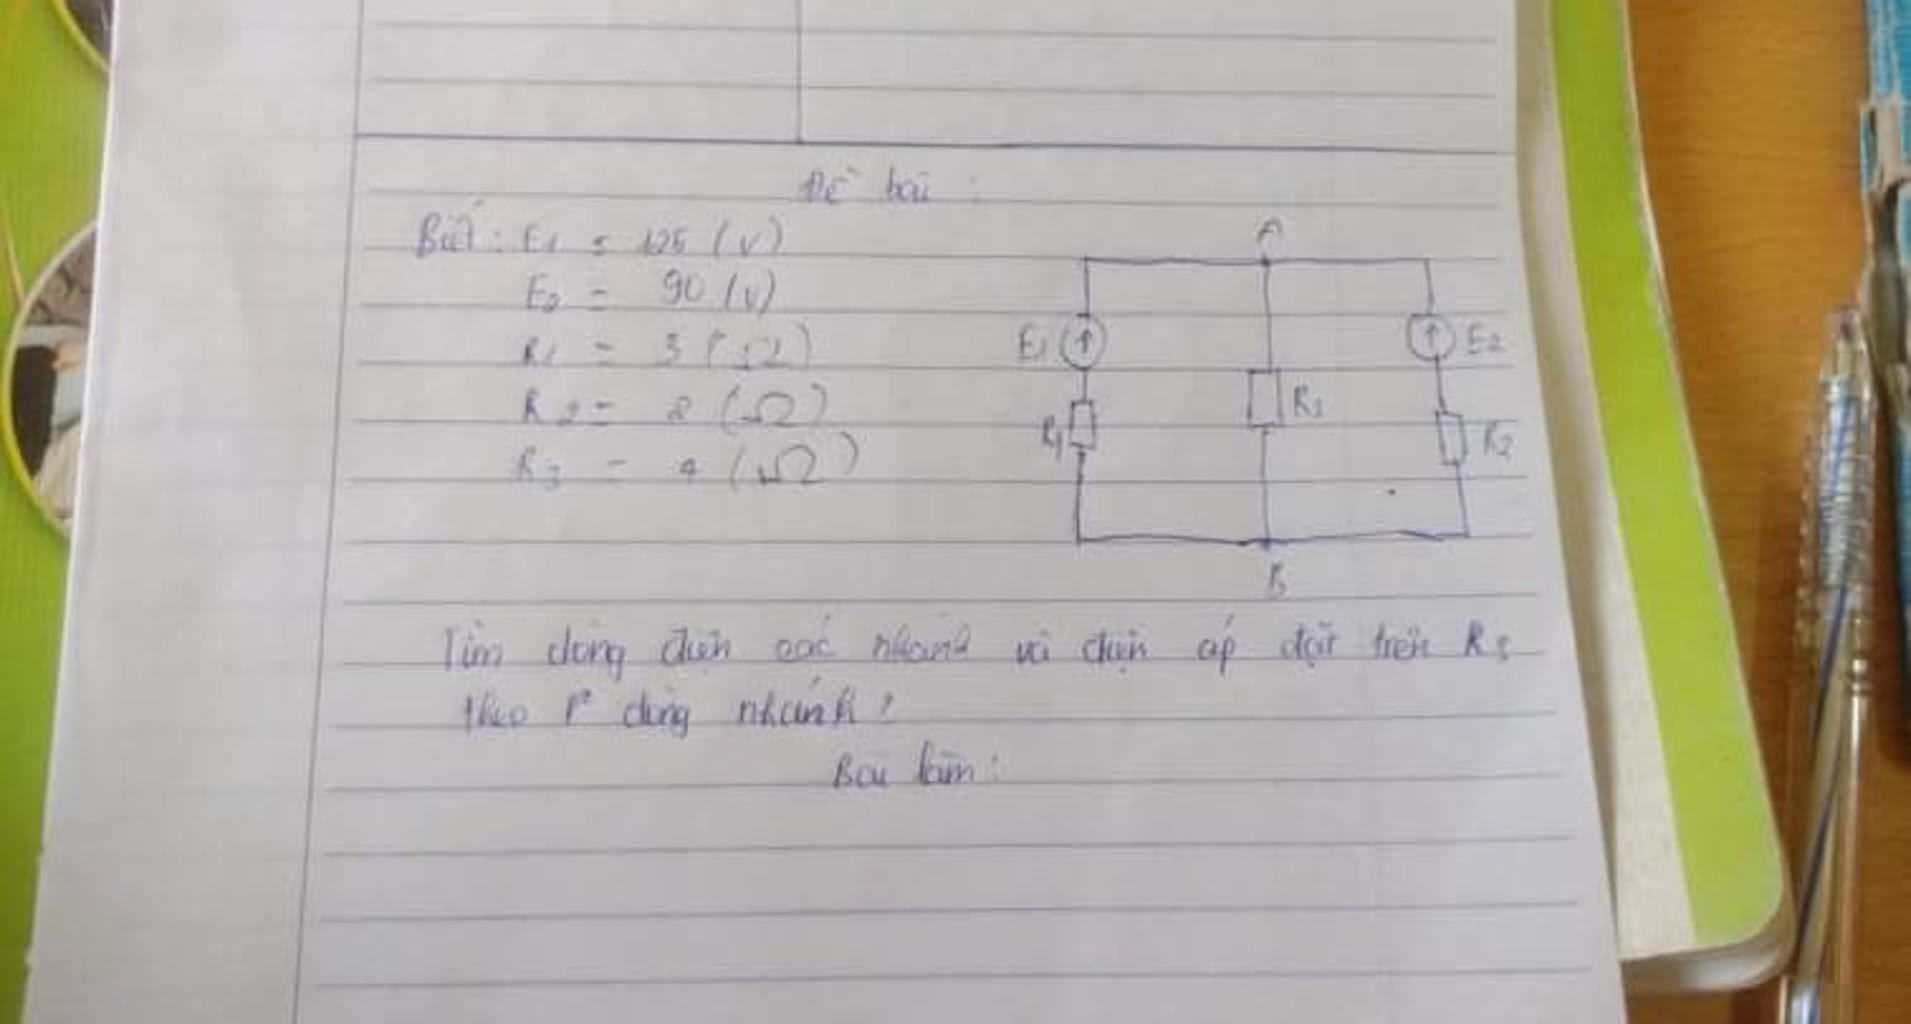 Đề bài :
Biết : E1 = 125 (V)
E2 = 90 (V)
R1 = 3 (Ω)
R2 = 2 (Ω)
R3 = 4 (Ω)
A
E1
E2
R3
R1
R2
B
Tìm dòng điện các nhánh và điện áp đặt trên R3
theo P² dòng nhánh ?
Bài làm :